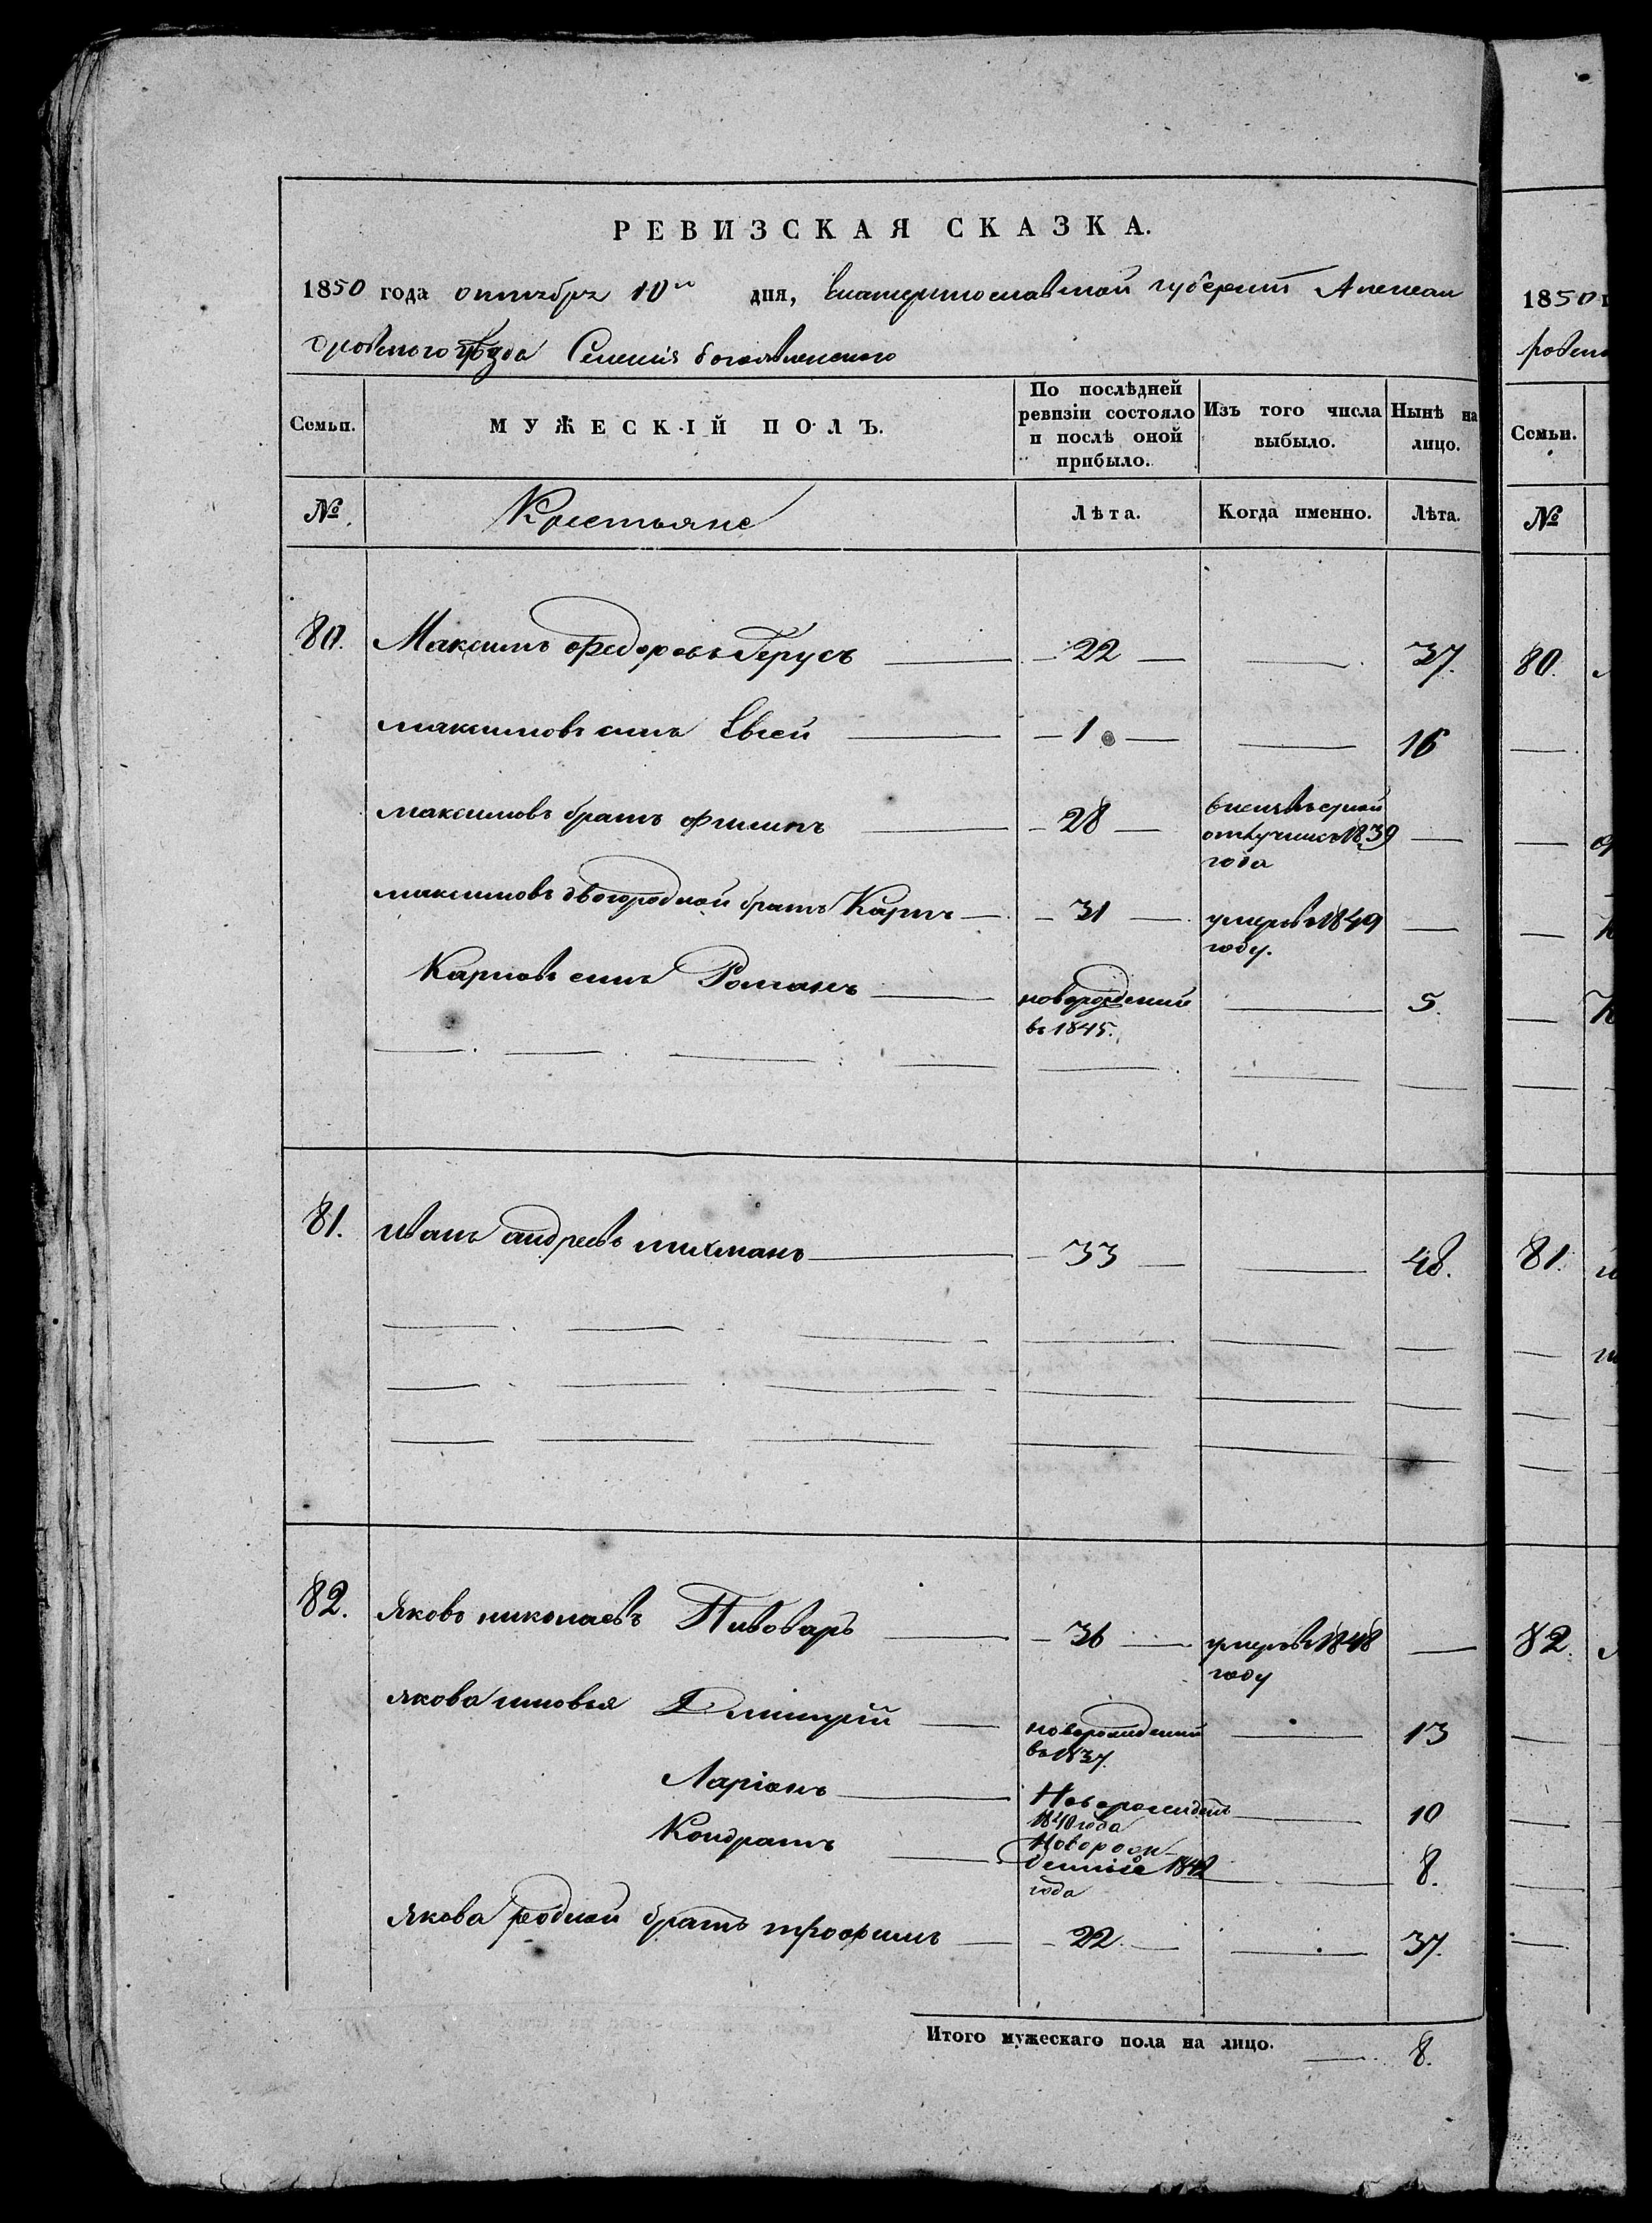 РЕВИЗСКАЯ СКАЗКА.
1850 года октября 10го дня, Екатеринославской губернии Алексан
дровского уѣзда Селенія богоявленского
Семьи. МУЖЕСКІЙ ПОЛЪ. По послѣдней ревизіи состояло и послѣ оной прибыло. Изъ того числа выбыло. Нынѣ на лицо.
№ Крестьяне Лѣта. Когда именно. Лѣта.
80. Максимъ Федоровъ Герусъ 22 37.
максимовъ сынъ Евсей 1 16
максимовъ братъ филипъ 28 отлучкѣ 1839 года
максимовъ двоюродной братъ Карпъ 31 умеръ в 1849 году.
Карповъ сынъ Романъ новорожденный въ 1845. 5.
81. иванъ андреевъ михманъ 33 48.
82. Яковъ николаевъ Пивоваръ 36 умеръ в 1848 году
якова сыновья Дмитрій новорожденый въ 1837. 13
Ларіонъ Новорожденъ 1840 года 10
Кондратъ Новорож-
денный 1842 года 8.
Якова родной братъ трофимъ 22. 37.
Итого мужескаго пола на лицо. 8.
1850
Семьи.
№
80.
81.
82.